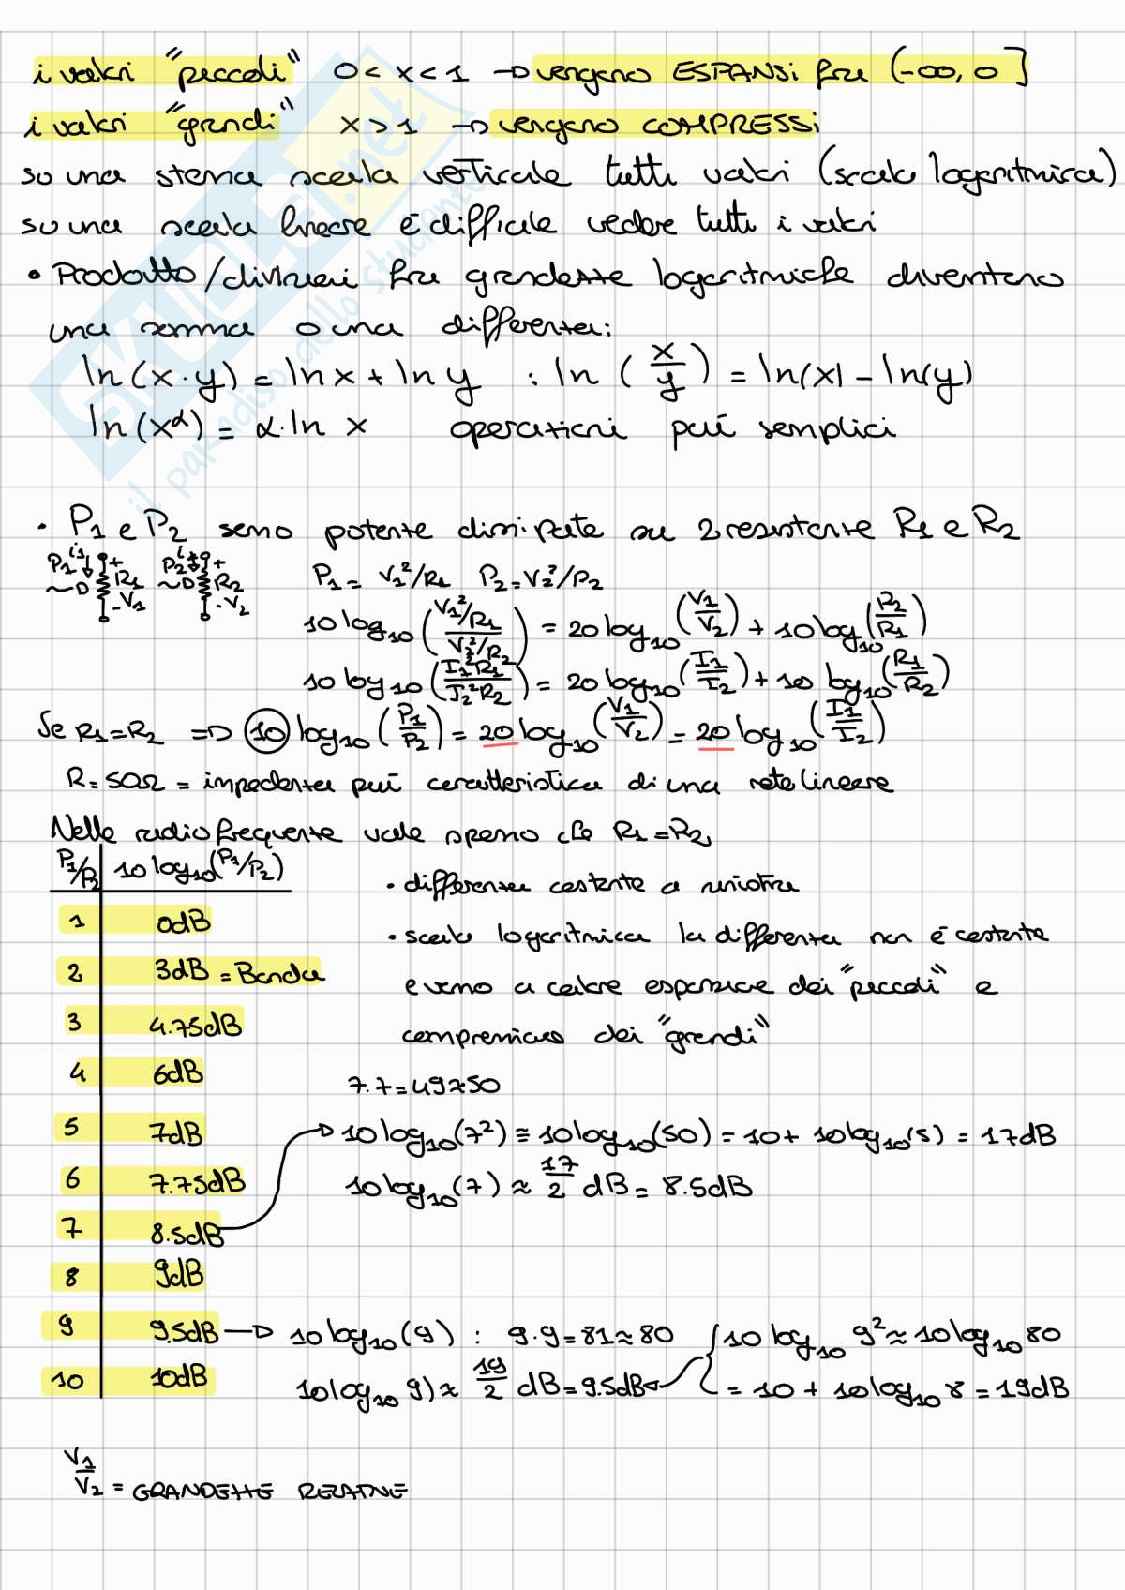 i valori "piccoli" 0 < x < 1 → vengono ESPANSI fra (-∞, 0]
i valori "grandi" x > 1 → vengono COMPRESSI
su una stessa scala verticale tutti valori (scala logaritmica)
su una scala lineare è difficile vedere tutti i valori
• Prodotto/divisioni fra grandezze logaritmiche diventano
una somma o una differenza:
ln(x·y) = ln x + ln y : ln (x/y) = ln(x) - ln(y)
ln(x^α) = α·ln x operazioni più semplici
• P1 e P2 sono potenze dissipate su 2 resistenze R1 e R2
P1 i1 + R1 - V1 P2 i2 + R2 - V2
P1 = V1²/R1 P2 = V2²/R2
10 log10 ((V1²/R1)/(V2²/R2)) = 20 log10 (V1/V2) + 10 log10 (R2/R1)
10 log10 (I1²R1/I2²R2) = 20 log10 (I1/I2) + 10 log10 (R1/R2)
Se R1=R2 => 10 log10 (P1/P2) = 20 log10 (V1/V2) = 20 log10 (I1/I2)
R = 50Ω = impedenza più caratteristica di una rete lineare
Nelle radiofrequenze vale spesso che R1=R2,
P1/P2 10 log10(P1/P2)
• differenza costante a sinistra
1 0dB
• scala logaritmica la differenza non è costante
2 3dB = Banda
e vanno a calare espansione dei "piccoli" e
3 4.75dB
compressione dei "grandi"
4 6dB
7.7 = 49 ≈ 50
5 7dB
→ 10 log10(7²) ≅ 10 log10(50) = 10 + 10 log10(5) = 17dB
6 7.75dB
10 log10(7) ≈ 17/2 dB = 8.5dB
7 8.5dB
8 9dB
9 9.5dB → 10 log10(9) : 9·9 = 81 ≈ 80 { 10 log10 9² ≈ 10 log10 80
10 10dB
10 log10 9) ≈ 19/2 dB = 9.5dB ← = 10 + 10 log10 8 = 19dB
V1/V2 = GRANDEZZE RELATIVE
SKUOLA.net
il paradiso dello studente